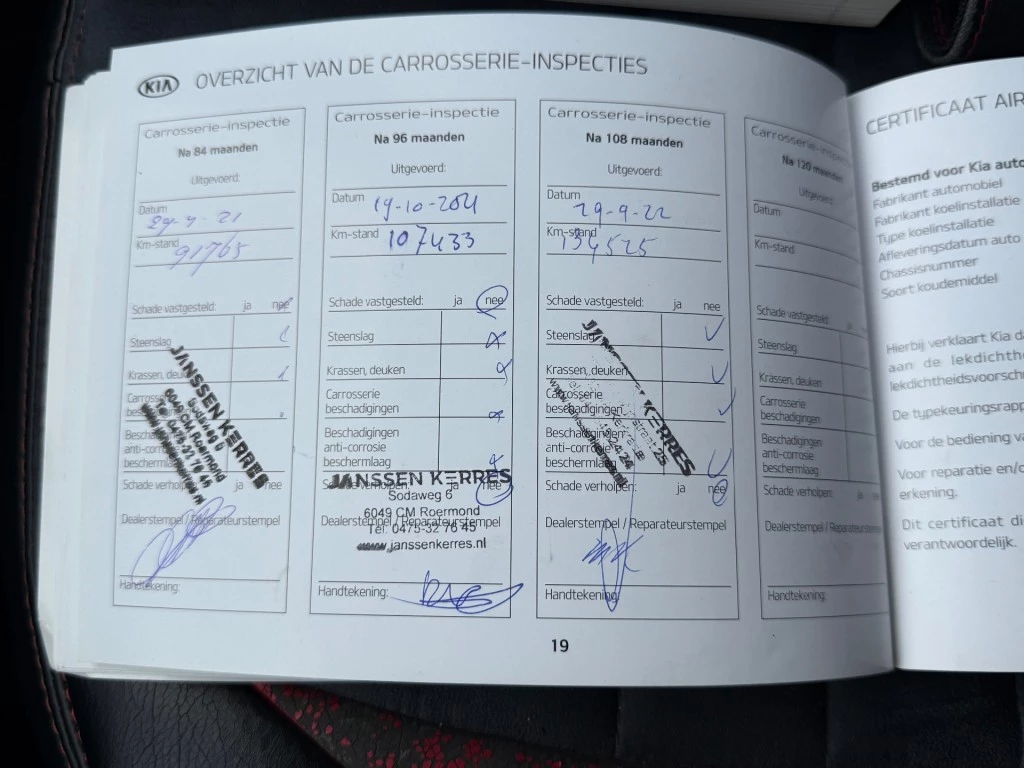 KIA OVERZICHT VAN DE CARROSSERIE-INSPECTIES
Carrosserie-inspectie
Na 84 maanden
Uitgevoerd:
Datum
Km-stand
91765
Schade vastgesteld: ja nee
Steenslag
Krassen, deuken
Carrosserie
JANSSEN KERRES
Sodaweg 6
6049 CM Roermond
Tel. 0475-32 76 45
anti-corrosie
beschermlaag
Schade verholpen: ja nee
Dealerstempel / Reparateurstempel
Handtekening:
Carrosserie-inspectie
Na 96 maanden
Uitgevoerd:
Datum 19-10-2021
Km-stand 107433
Schade vastgesteld: ja nee
Steenslag
Krassen, deuken
Carrosserie
beschadigingen
Beschadigingen
anti-corrosie
beschermlaag
Schade verholpen: ja nee
JANSSEN KERRES
Sodaweg 6
6049 CM Roermond
Dealerstempel / Reparateurstempel
Tel. 0475-32 76 45
www.janssenkerres.nl
Handtekening:
Carrosserie-inspectie
Na 108 maanden
Uitgevoerd:
Datum
29-9-22
Km-stand
134525
Schade vastgesteld: ja nee
Steenslag
Krassen, deuken
Carrosserie
beschadigingen
Beschadigingen
anti-corrosie
beschermlaag
KERRES
Schade verholpen: ja nee
Dealerstempel / Reparateurstempel
Handtekening:
Carrosserie-inspectie
Na 120 maanden
Uitgevoerd:
Datum
Km-stand
Schade vastgesteld: ja
Steenslag
Krassen, deuken
Carrosserie
beschadigingen
Beschadigingen
anti-corrosie
beschermlaag
Schade verholpen: ja
Dealerstempel / Reparateurstempel
Handtekening:
19
CERTIFICAAT AIR
Bestemd voor Kia auto
Fabrikant automobiel
Fabrikant koelinstallatie
Type koelinstallatie
Afleveringsdatum auto
Chassisnummer
Soort koudemiddel
Hierbij verklaart Kia da
aan de lekdichthe
lekdichtheidsvoorschr
De typekeuringsrapp
Voor de bediening va
Voor reparatie en/o
erkening.
Dit certificaat di
verantwoordelijk.